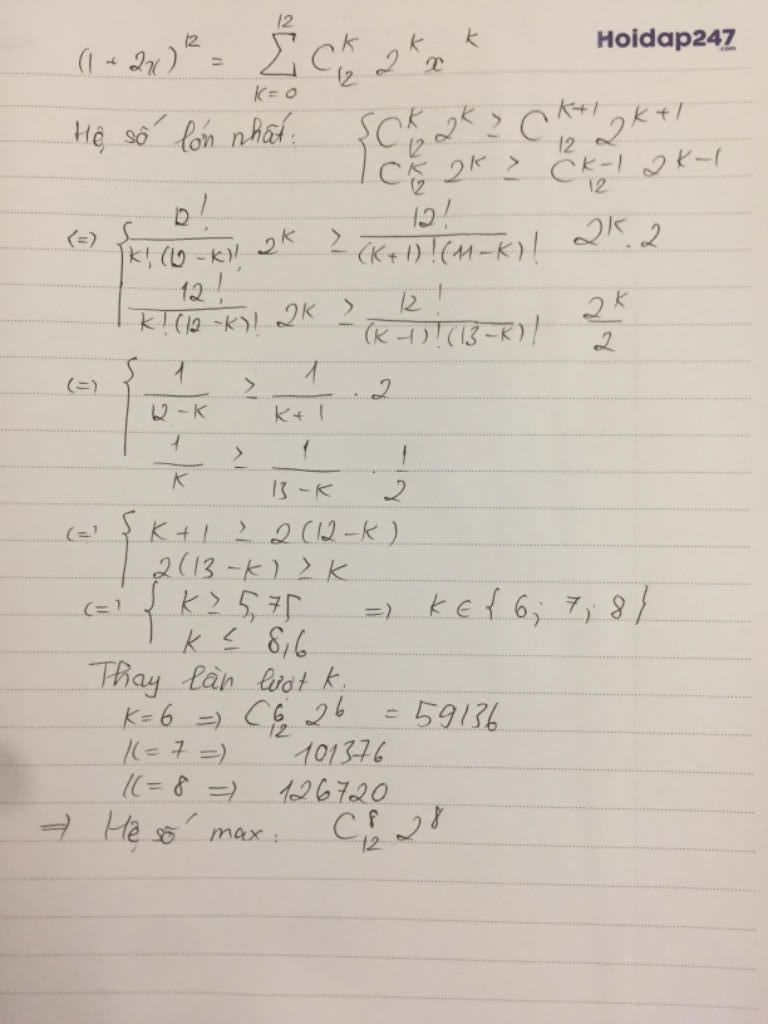 Hoidap247
.com
(1 + 2x)^12 = 12∑K=0 C_12^K 2^K x^K
Hệ số lớn nhất: { C_12^K 2^K ≥ C_12^{K+1} 2^{K+1}
C_12^K 2^K ≥ C_12^{K-1} 2^{K-1}
(=) { 12!/(K!(12-K)!) 2^K ≥ 12!/((K+1)!(11-K)!) 2^K . 2
12!/(K!(12-K)!) 2^K ≥ 12!/((K-1)!(13-K)!) 2^K/2
(=) { 1/(12-K) ≥ 1/(K+1) . 2
1/K ≥ 1/(13-K) . 1/2
(=) { K+1 ≥ 2(12-K)
2(13-K) ≥ K
(=) { K ≥ 5,75 => K ∈ { 6; 7; 8 }
K ≤ 8,6
Thay lần lượt K.
K=6 => C_12^6 2^6 = 59136
K=7 => 101376
K=8 => 126720
=> Hệ số max: C_12^8 2^8